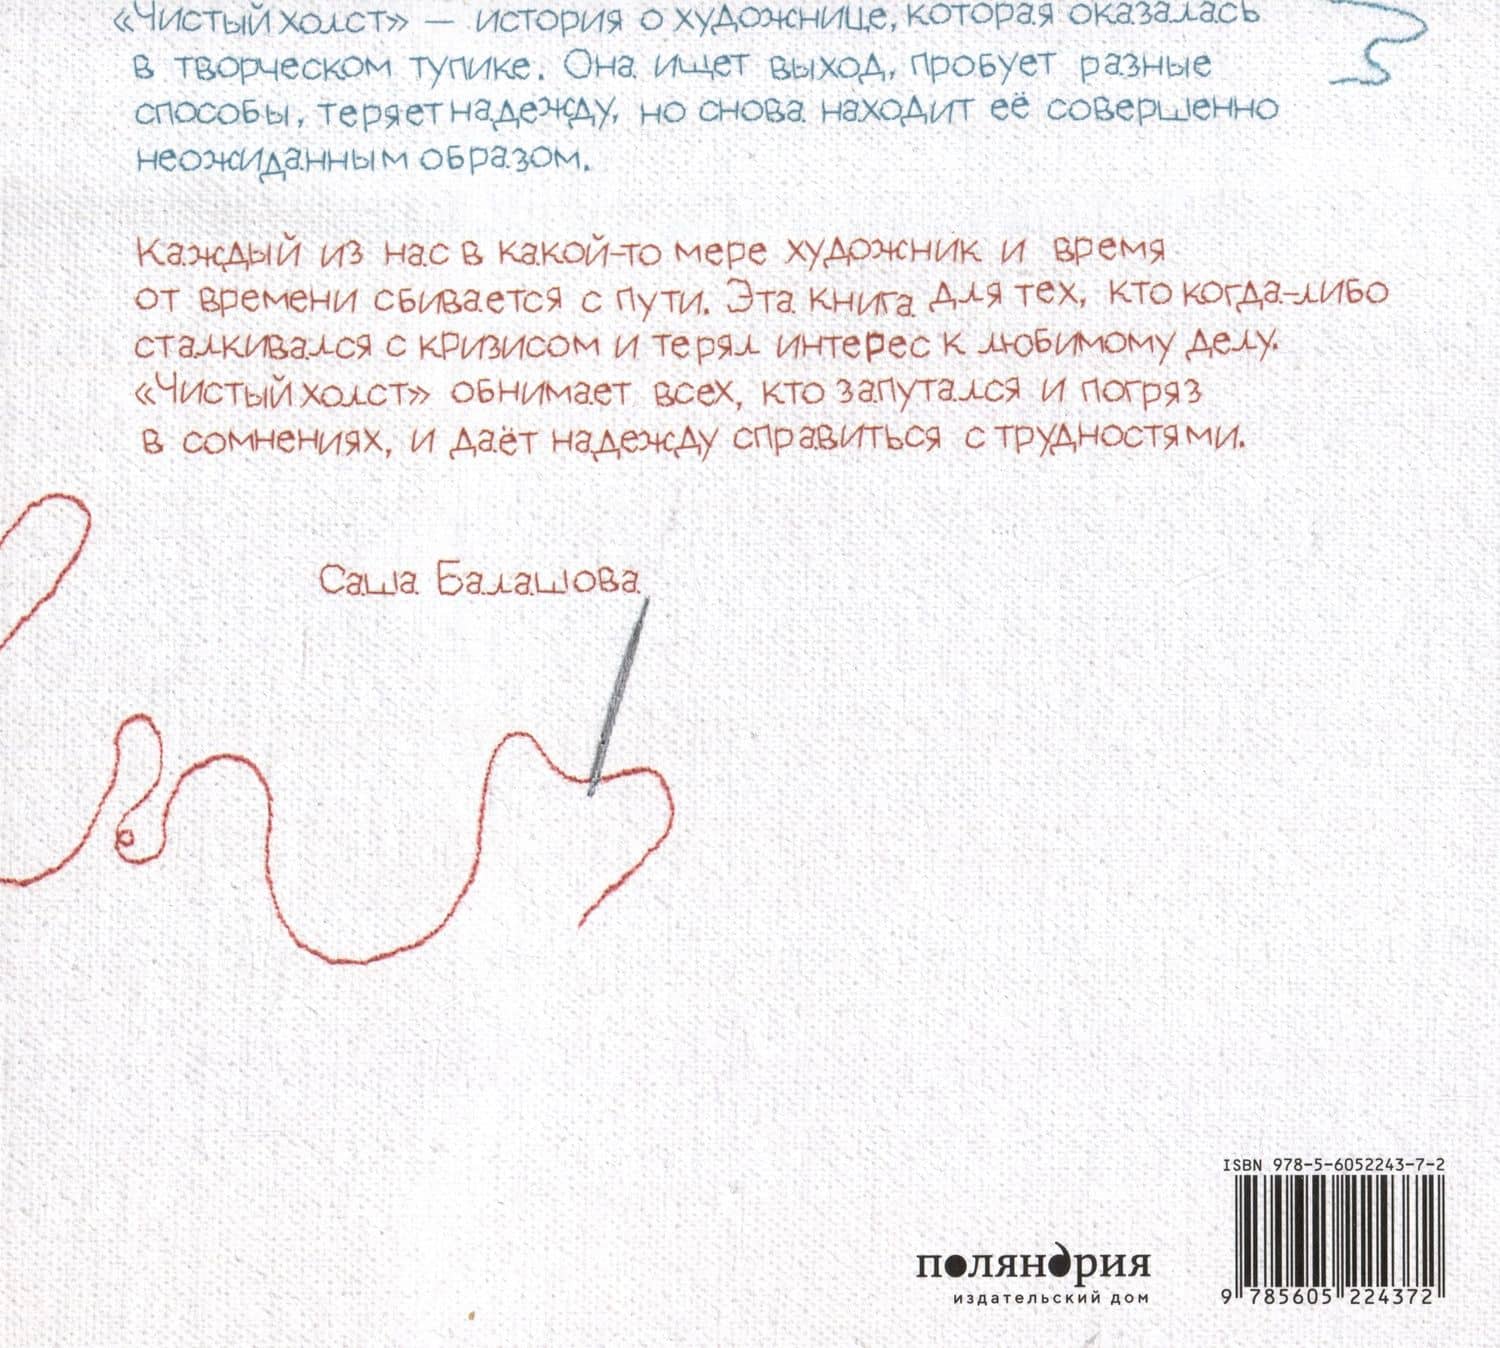 «Чистый холст» — история о художнице, которая оказалась
в творческом тупике. Она ищет выход, пробует разные
способы, теряет надежду, но снова находит её совершенно
неожиданным образом.
Каждый из нас в какой-то мере художник и время
от времени сбивается с пути. Эта книга для тех, кто когда-либо
сталкивался с кризисом и терял интерес к любимому делу.
«Чистый холст» обнимает всех, кто запутался и погряз
в сомнениях, и даёт надежду справиться с трудностями.
Саша Балашова
ISBN 978-5-6052243-7-2
поляндрия
издательский дом
9 785605 224372